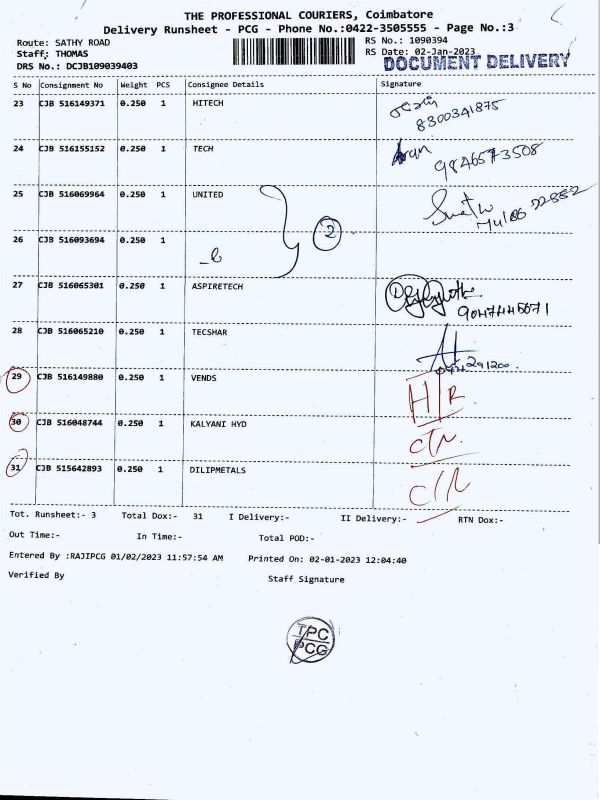 THE PROFESSIONAL COURIERS, Coimbatore
Delivery Runsheet - PCG - Phone No.:0422-3505555 - Page No.:3
Route: SATHY ROAD
RS No.: 1090394
Staff: THOMAS
RS Date: 02-Jan-2023
DOCUMENT DELIVERY
DRS No.: DCJB109039403
S No Consignment No Weight PCS Consignee Details Signature
23 CJB 516149371 0.250 1 HITECH
8300341875
24 CJB 516155152 0.250 1 TECH
9846573508
25 CJB 516069964 0.250 1 UNITED
2
26 CJB 516093694 0.250 1
27 CJB 516065301 0.250 1 ASPIRETECH
28 CJB 516065210 0.250 1 TECSHAR
29 CJB 516149880 0.250 1 VENDS
30 CJB 516048744 0.250 1 KALYANI HYD
31 CJB 515642893 0.250 1 DILIPMETALS
Tot. Runsheet:- 3 Total Dox:- 31 I Delivery:- II Delivery:- RTN Dox:-
Out Time:- In Time:- Total POD:-
Entered By :RAJIPCG 01/02/2023 11:57:54 AM Printed On: 02-01-2023 12:04:40
Verified By Staff Signature
TPC
PCG